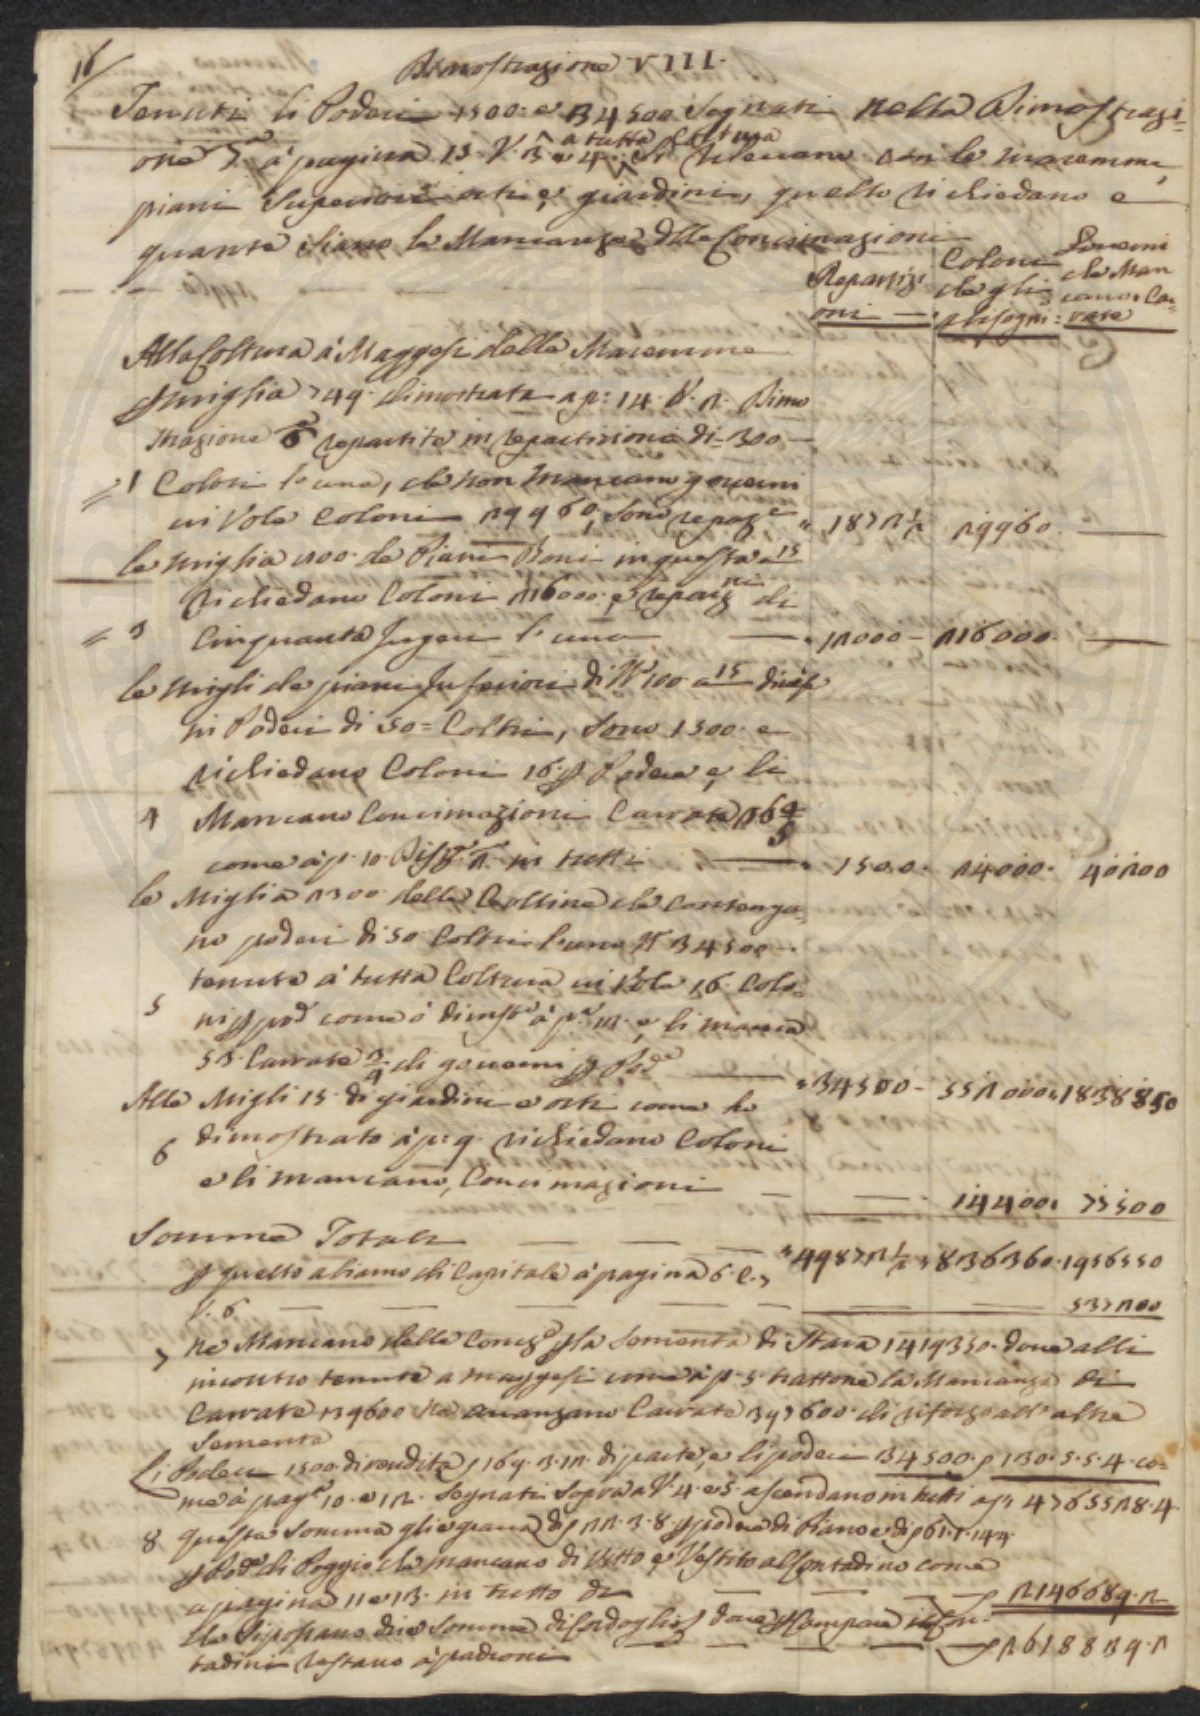 16
Dimostrazione VIII.
Tenuti li Poderi 1500: e 34500 Segnati nella Dimostrazi=
one 7.ª à pagina 13. V. 3 e 4. a tutta Coltura si tenerano con le maremme,
piani Superiori orti, e giardini, quello richiedano e
quante siano le Mancanze delle Concimazioni
Repartizi
oni
Coloni
che gli
abisogni:
Governi
che Man
cano: Car=
rate
Alla Coltura à Maggesi delle Maremme
Miglia 749. dimostrata a p: 14. V. 2. Dimo
strazione 6ª repartite in repartizioni di 300
1 Coloni l'una, che non Mancano governi
ni Vole Coloni 29960, sono repaz.e 1872 1/2 29960.
le Miglia 200. de Piani Boni in questa a 15
richiedano Coloni 216000. e repaiz.ni di
3 Cinquanta Jugeri l'uno 12000 216000.
le Migli de piani Inferiori di N.º 100 a 15 divise
in Poderi di 50= Coltri, sono 1500. e
richiedano Coloni 16. p Podere, e li
4 Mancano Concimazioni Carrate 26 4/5
come à p. 10 in tutti 1500. 24000. 40200
le Miglia 2300 delle Colline che Contenga=
no poderi di 50 Coltri l'uno N. 34500
tenute à tutta Coltura ni Vole 16. Colo=
5 ni p pod.e come ò dimost.º à p.ª 12. e li manca
53. Carrate 3/4 di governi p Pod.e 34500 552000. 1838850
Alle Migli 15. di giardini e orti come ho
dimostrato à p: 9. richiedano Coloni
6 e li mancano, Concimazioni 14400. 77500
Somma Totale 49872 1/2 836360. 1956550
p quello abiamo di Capitale à pagina 6. C. 7
V. 6 537200
7 ne Mancano delle Concz.e p la Sementa di Stara 1419350. dove alli
incontro tenute a maggesi come à p. 5 trattone la Mancanza di
Carrate 139600 avanzano Carrate 397600. di rinforzo all' altre
Semente
Li Poderi 1500. di rendita p 169. 3. 12. di parte, e li poderi 34500. p 130. 5. 5. 4. co=
me à pag.ª 10. e 12. Segnati Sopra a V. 4. e 5. ascendano in tutti a p: 4765528. 4.
8 questa somma gli agrava di p 22. 3. 8. p podere di Piano e di p 61. 1. 14 4.
p Pod.e di Poggio che mancano di Vitto e Vestito al Contadino come
a pagina 11 e 13. in tutto di 2146689. 2
che si possano dire Somma di Cordoglio dove p Campare il Con=
tadini restano à padroni p 2618839. 2